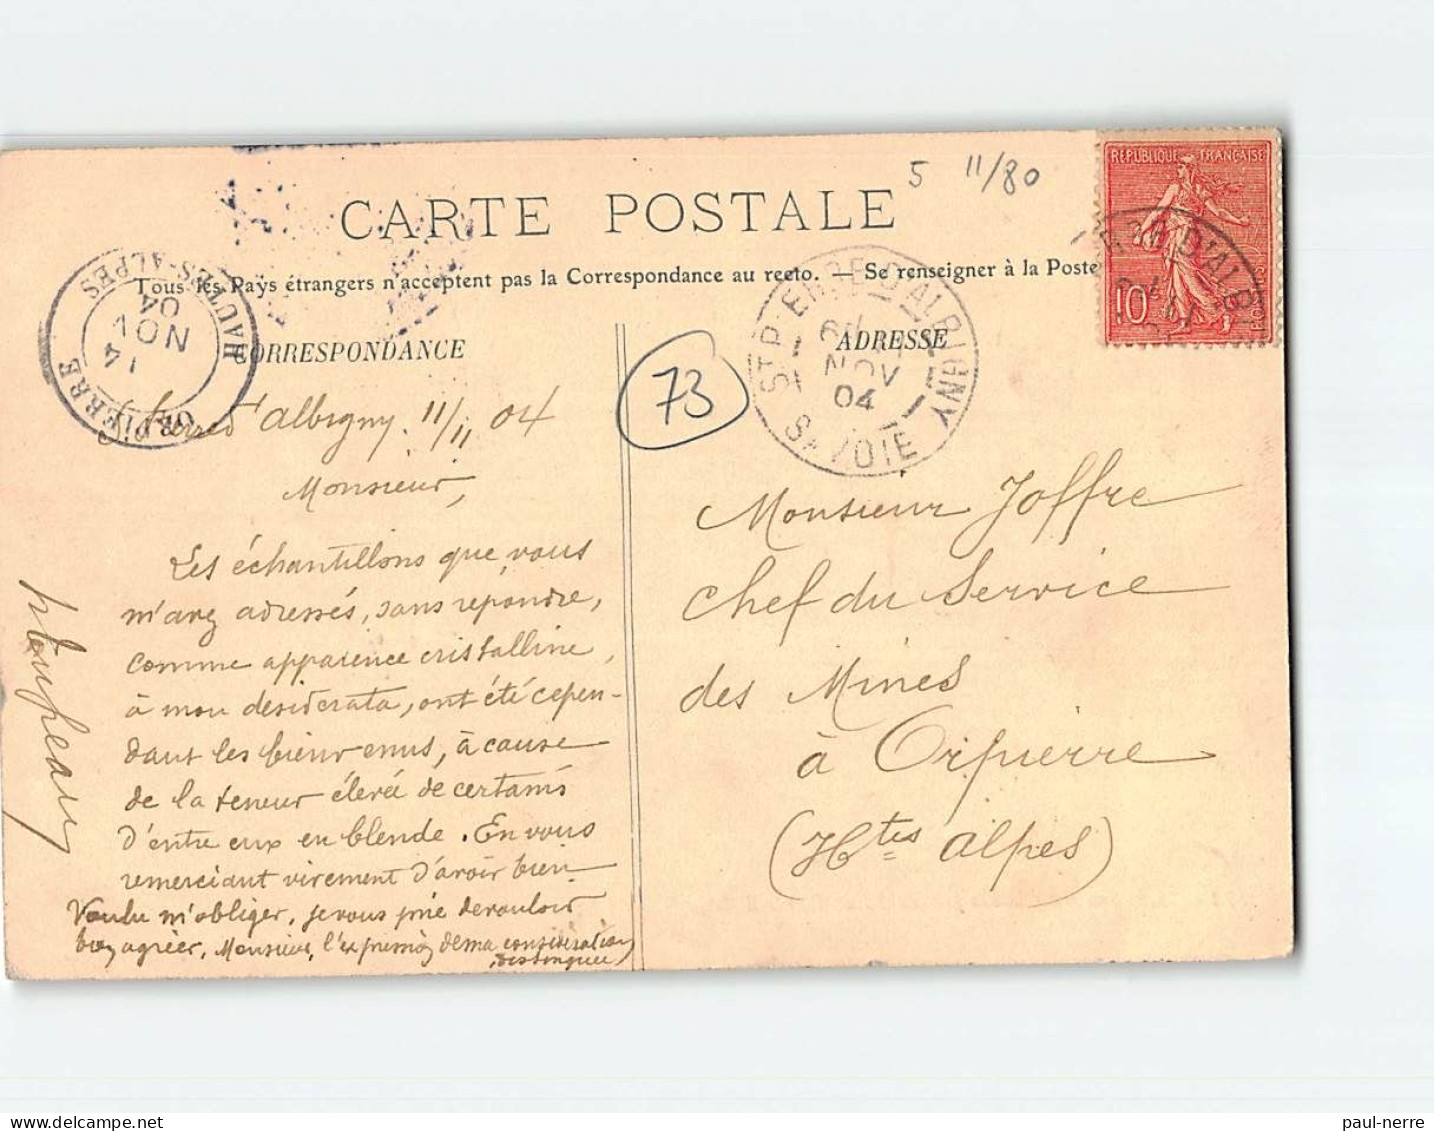 5 11/80
CARTE POSTALE
Tous les Pays étrangers n'acceptent pas la Correspondance au recto. — Se renseigner à la Poste
CORRESPONDANCE
ADRESSE
RÉPUBLIQUE FRANÇAISE
10
ORPIERRE
14
NOV
04
HAUTES-ALPES
ST PIERRE D'ALBIGNY
NOV
04
SAVOIE
73
S. Pierre d'Albigny. 11/11 04
Monsieur,
Les échantillons que vous
m'avez adressés, sans répondre,
comme apparence cristalline,
à mon desiderata, ont été cepen-
dant les bienvenus, à cause
de la teneur élevée de certains
d'entre eux en blende. En vous
remerciant vivement d'avoir bien
voulu m'obliger, je vous prie de vouloir
bien agréer, Monsieur, l'expression de ma considération
distinguée
Monsieur Joffre
Chef du Service
des Mines
à Orpierre
(Htes Alpes)
paul-nerre